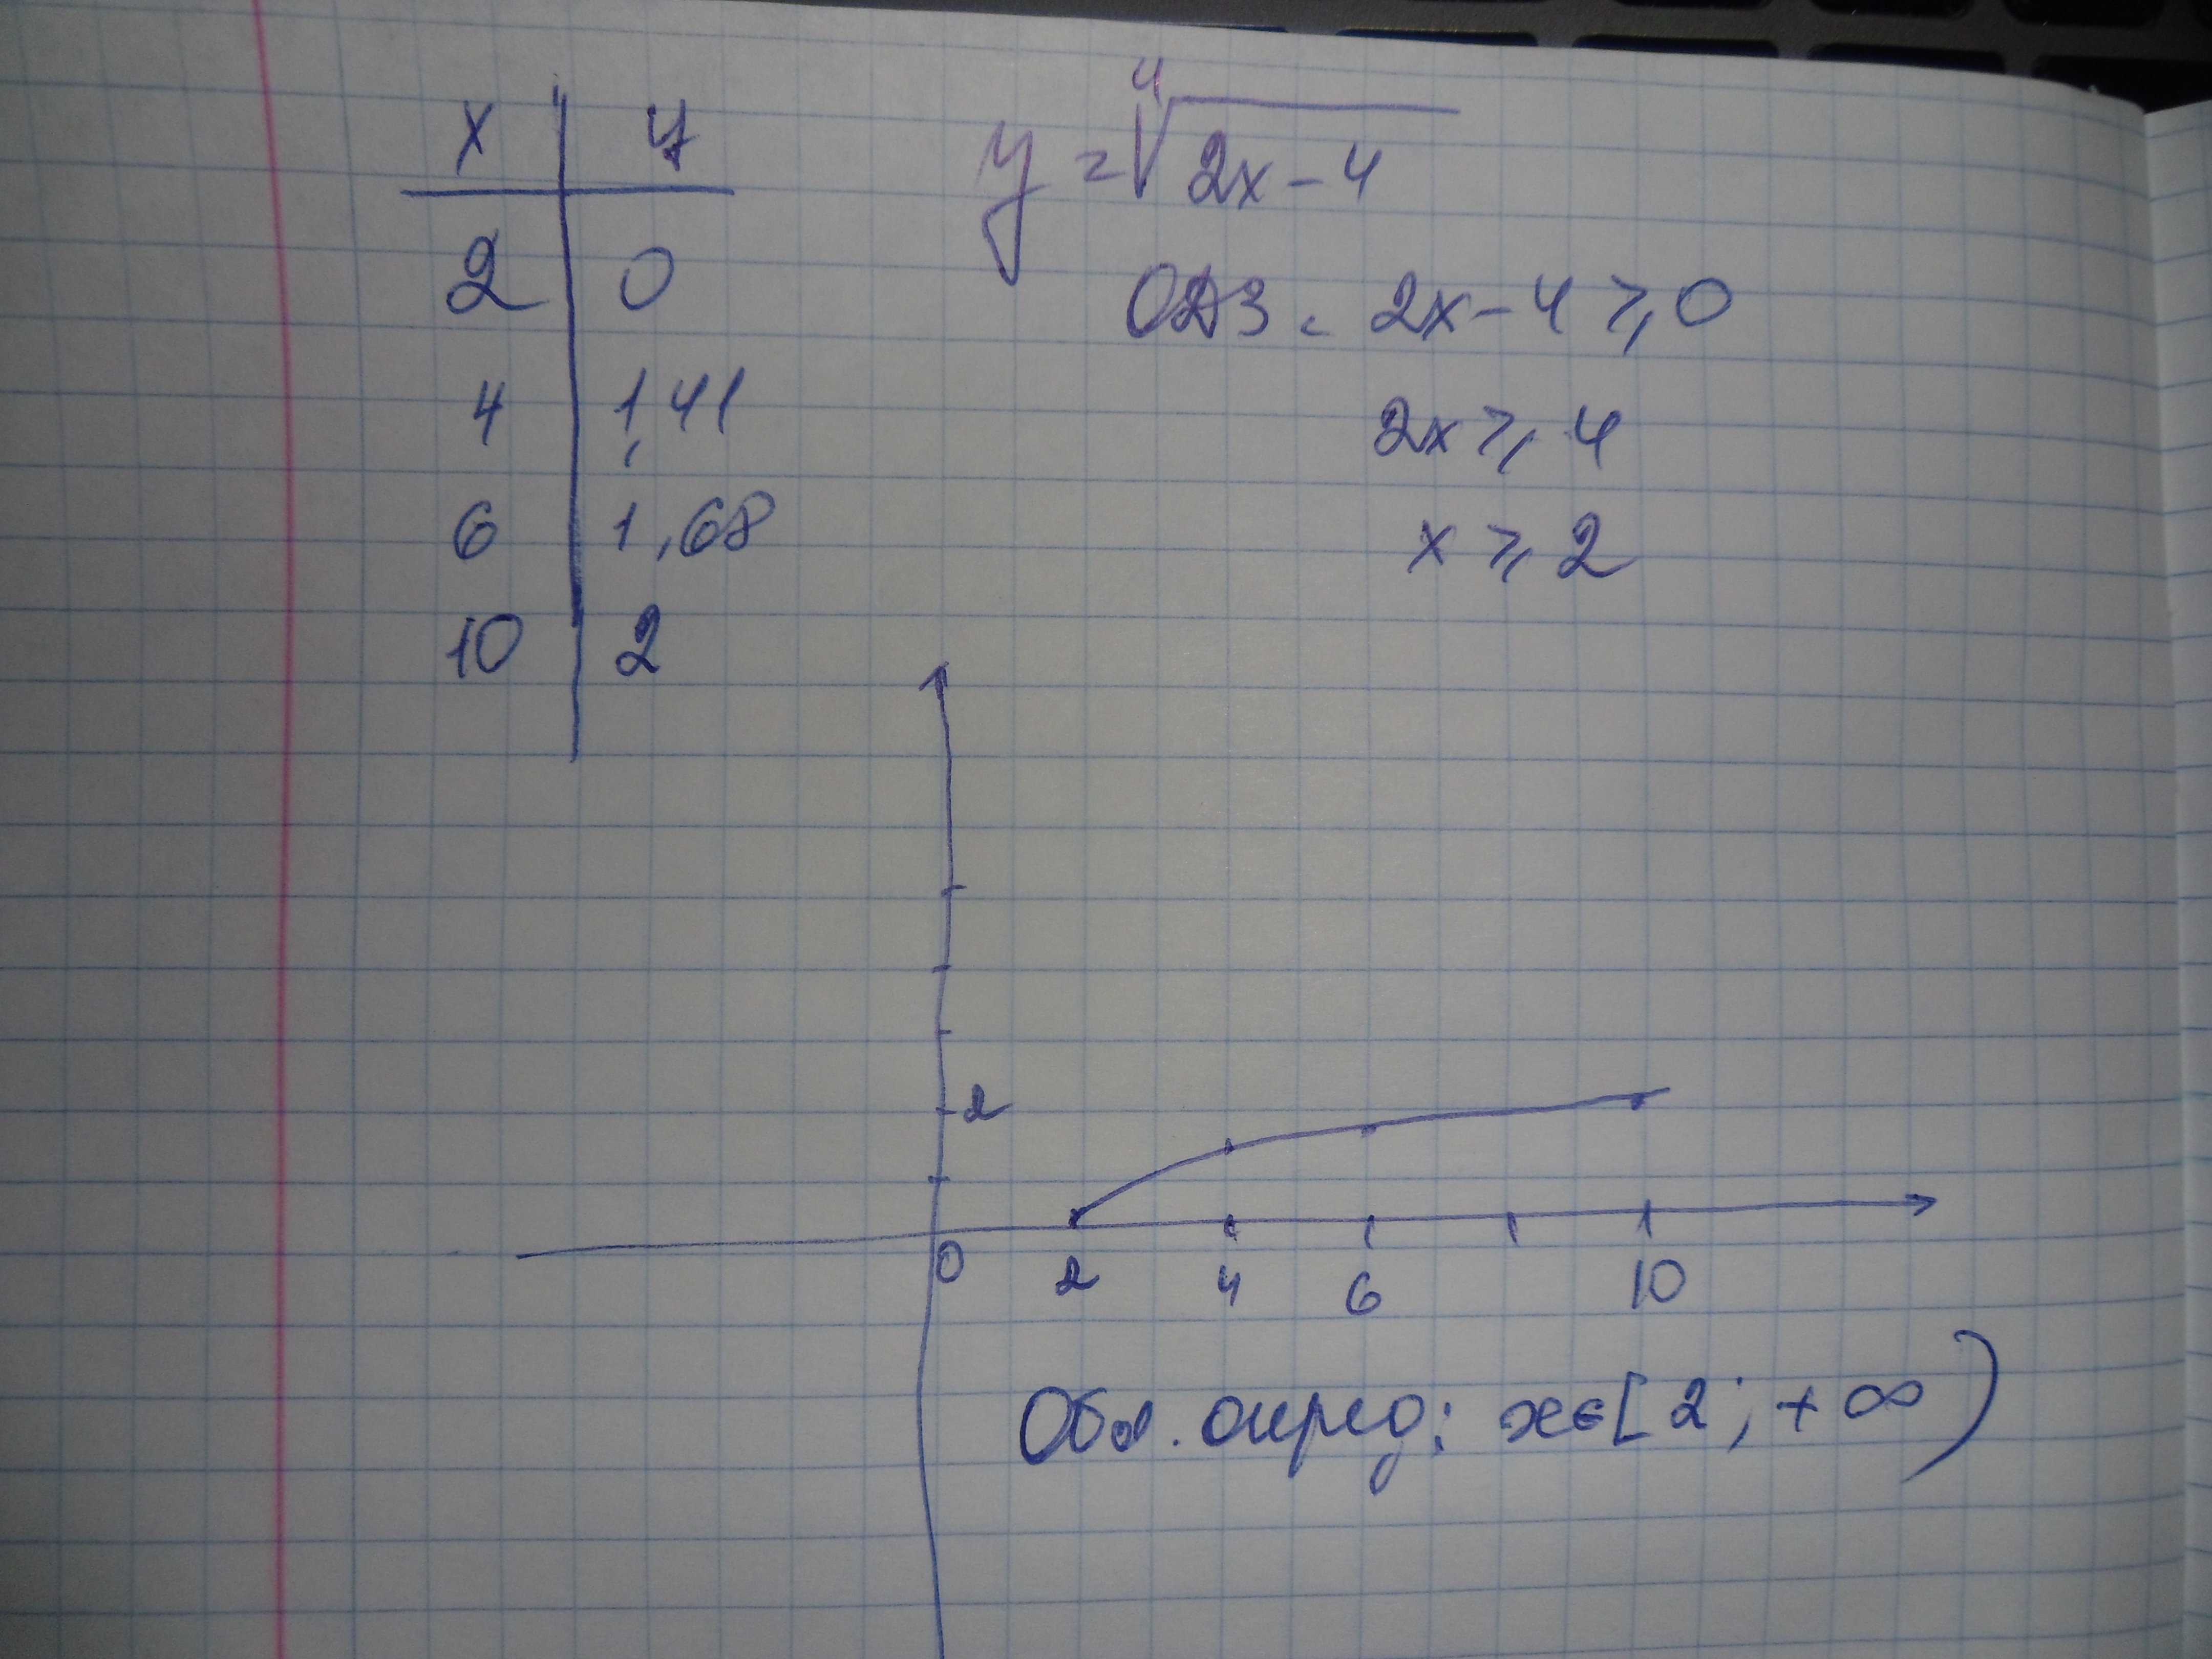 x | y
2 | 0
4 | 1,41
6 | 1,68
10 | 2
y = ⁴√(2x-4)
ОДЗ. 2x-4 ⩾ 0
2x ⩾ 4
x ⩾ 2
2
0 2 4 6 10
Обл. опред: x∈[2; +∞)